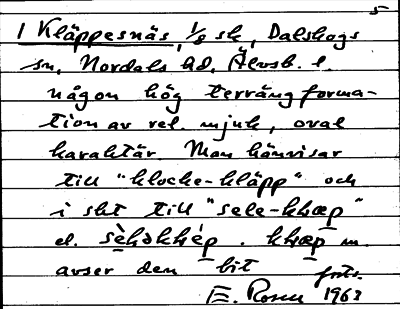 5
1 Kläppesnäs, 1/8 sk, Dalskogs
sn, Nordals hd, Älvsb. l.
någon hög terrängforma-
tion av rel. mjuk, oval
karaktär. Man hänvisar
till "klocke-kläpp" och
i sht till "sele-kḷæp"
el. sè̱ləkḷép . kḷæp m.
avser den bit
forts.
E. Rosen 1963